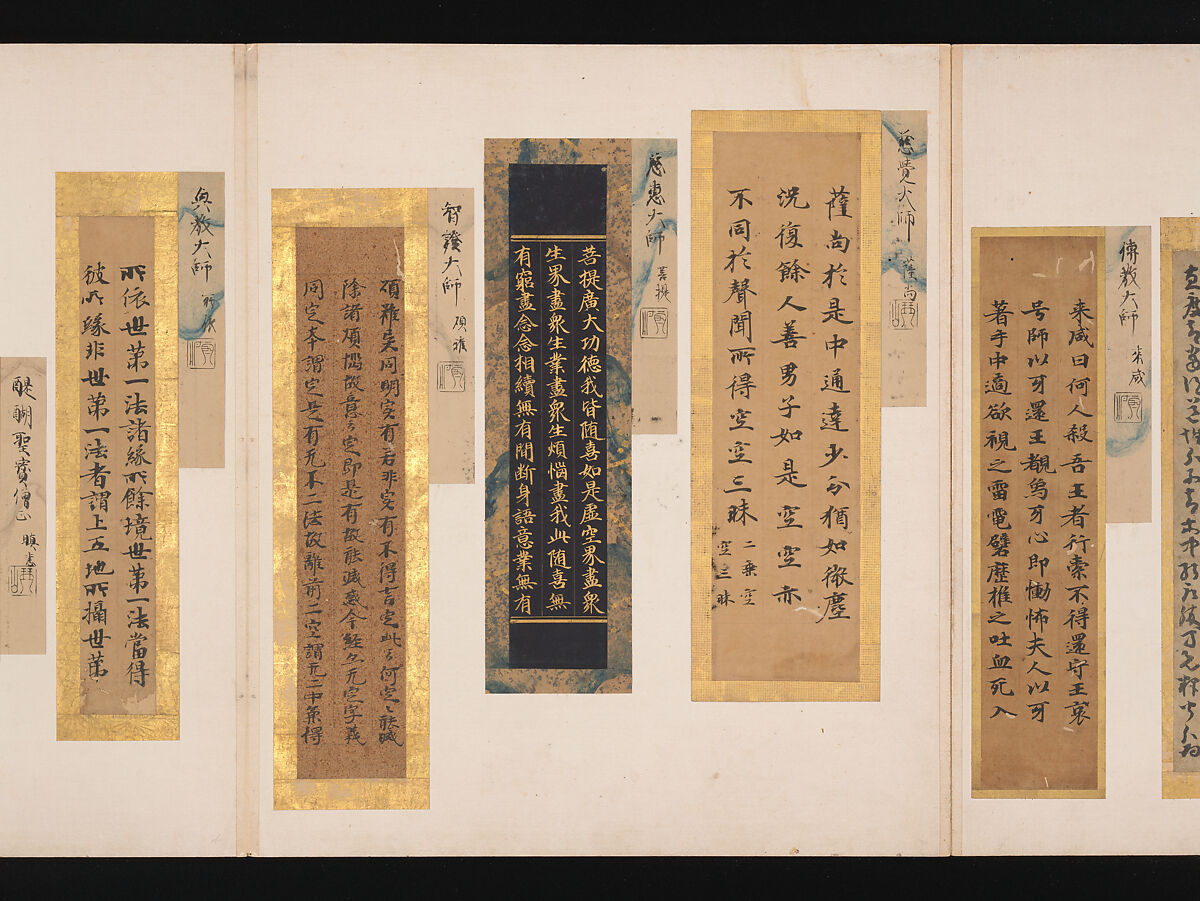 傳教大師
来威
来威曰何人殺吾王者行索不得還守王喪
号師以可還王覩烏可心即慟怖夫人以可
著手中適欲視之雷電礔靂椎之吐血死入
慈覺大師
薩尚
薩尚於是中通達少分猶如微塵
況復餘人善男子如是空空亦
不同於聲聞所得空空三昧 二乗空空三昧
慈惠大師
菩提
菩提廣大功徳我皆随喜如是虚空界盡衆
生界盡衆生業盡衆生煩惱盡我此随喜無
有窮盡念念相續無有間断身語意業無有
智證大師
頌難
頌難矣同明定有若非定有不得言定此云何定
除諸煩惱故意云定即是有故能滅惑今経无定字義
同定本謂定是有无不二法故離前二空謂无二中兼得
興教大師
所依
所依世第一法諸縁所餘境世第一法當得
彼所縁非世第一法者謂上五地所攝世第
醍醐聖寳僧正